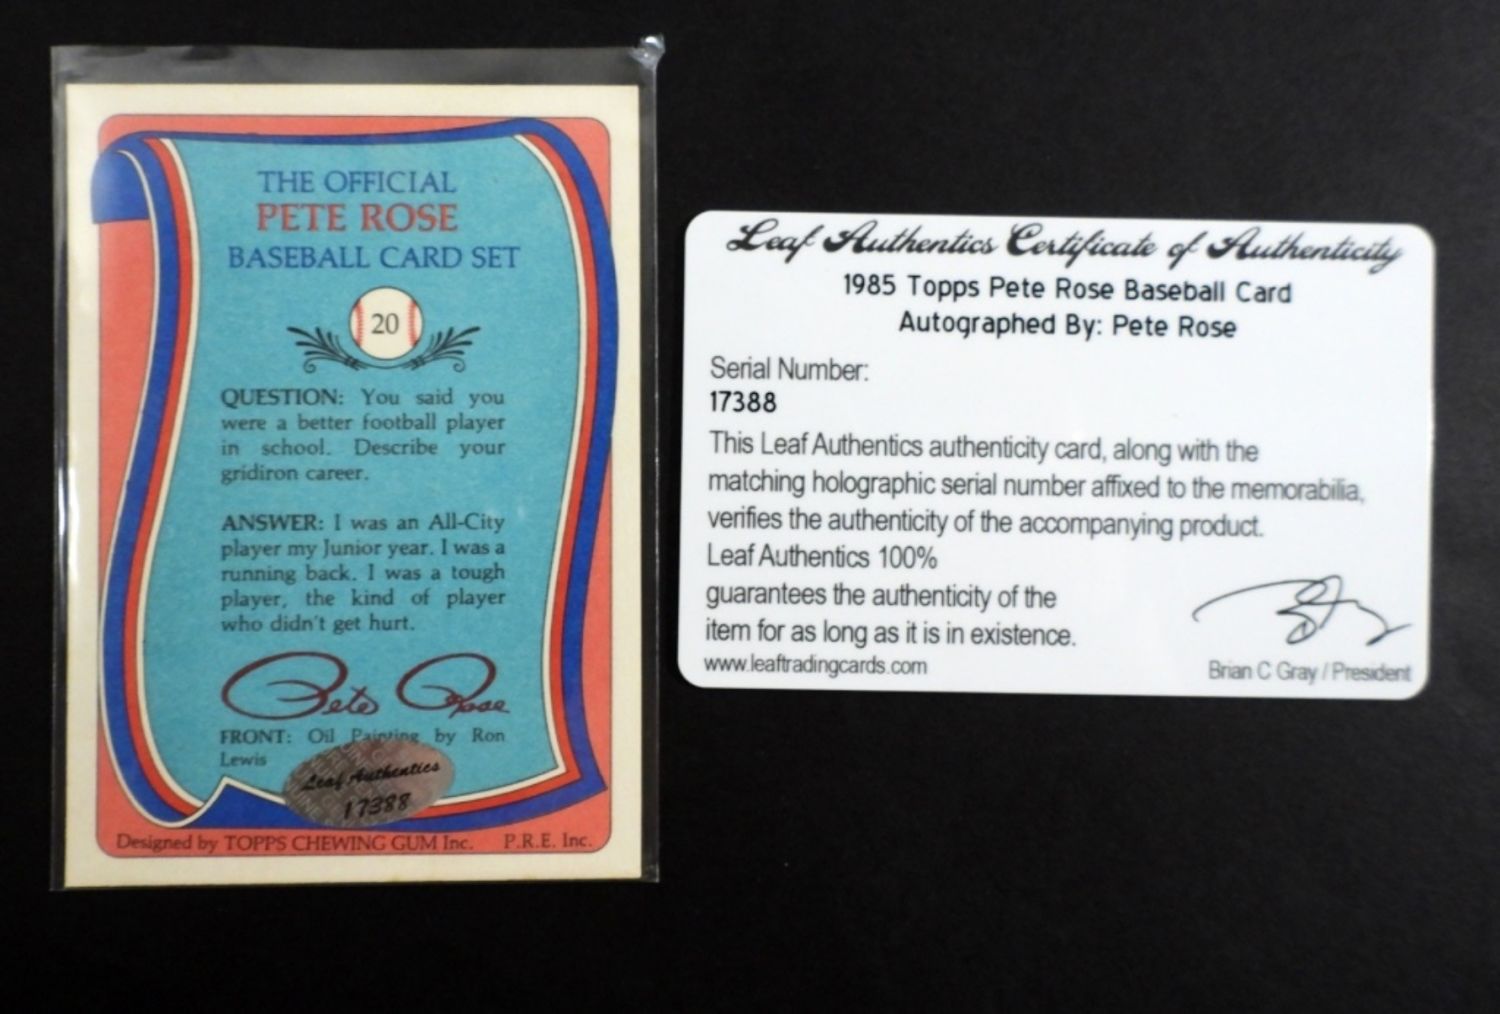 THE OFFICIAL
PETE ROSE
BASEBALL CARD SET
20
QUESTION: You said you
were a better football player
in school. Describe your
gridiron career.
ANSWER: I was an All-City
player my Junior year. I was a
running back. I was a tough
player, the kind of player
who didn't get hurt.
Pete Rose
FRONT: Oil Painting by Ron
Lewis
Leaf Authentics
17388
Designed by TOPPS CHEWING GUM Inc. P.R.E. Inc.
Leaf Authentics Certificate of Authenticity
1985 Topps Pete Rose Baseball Card
Autographed By: Pete Rose
Serial Number:
17388
This Leaf Authentics authenticity card, along with the
matching holographic serial number affixed to the memorabilia,
verifies the authenticity of the accompanying product.
Leaf Authentics 100%
guarantees the authenticity of the
item for as long as it is in existence.
www.leaftradingcards.com
Brian C Gray / President